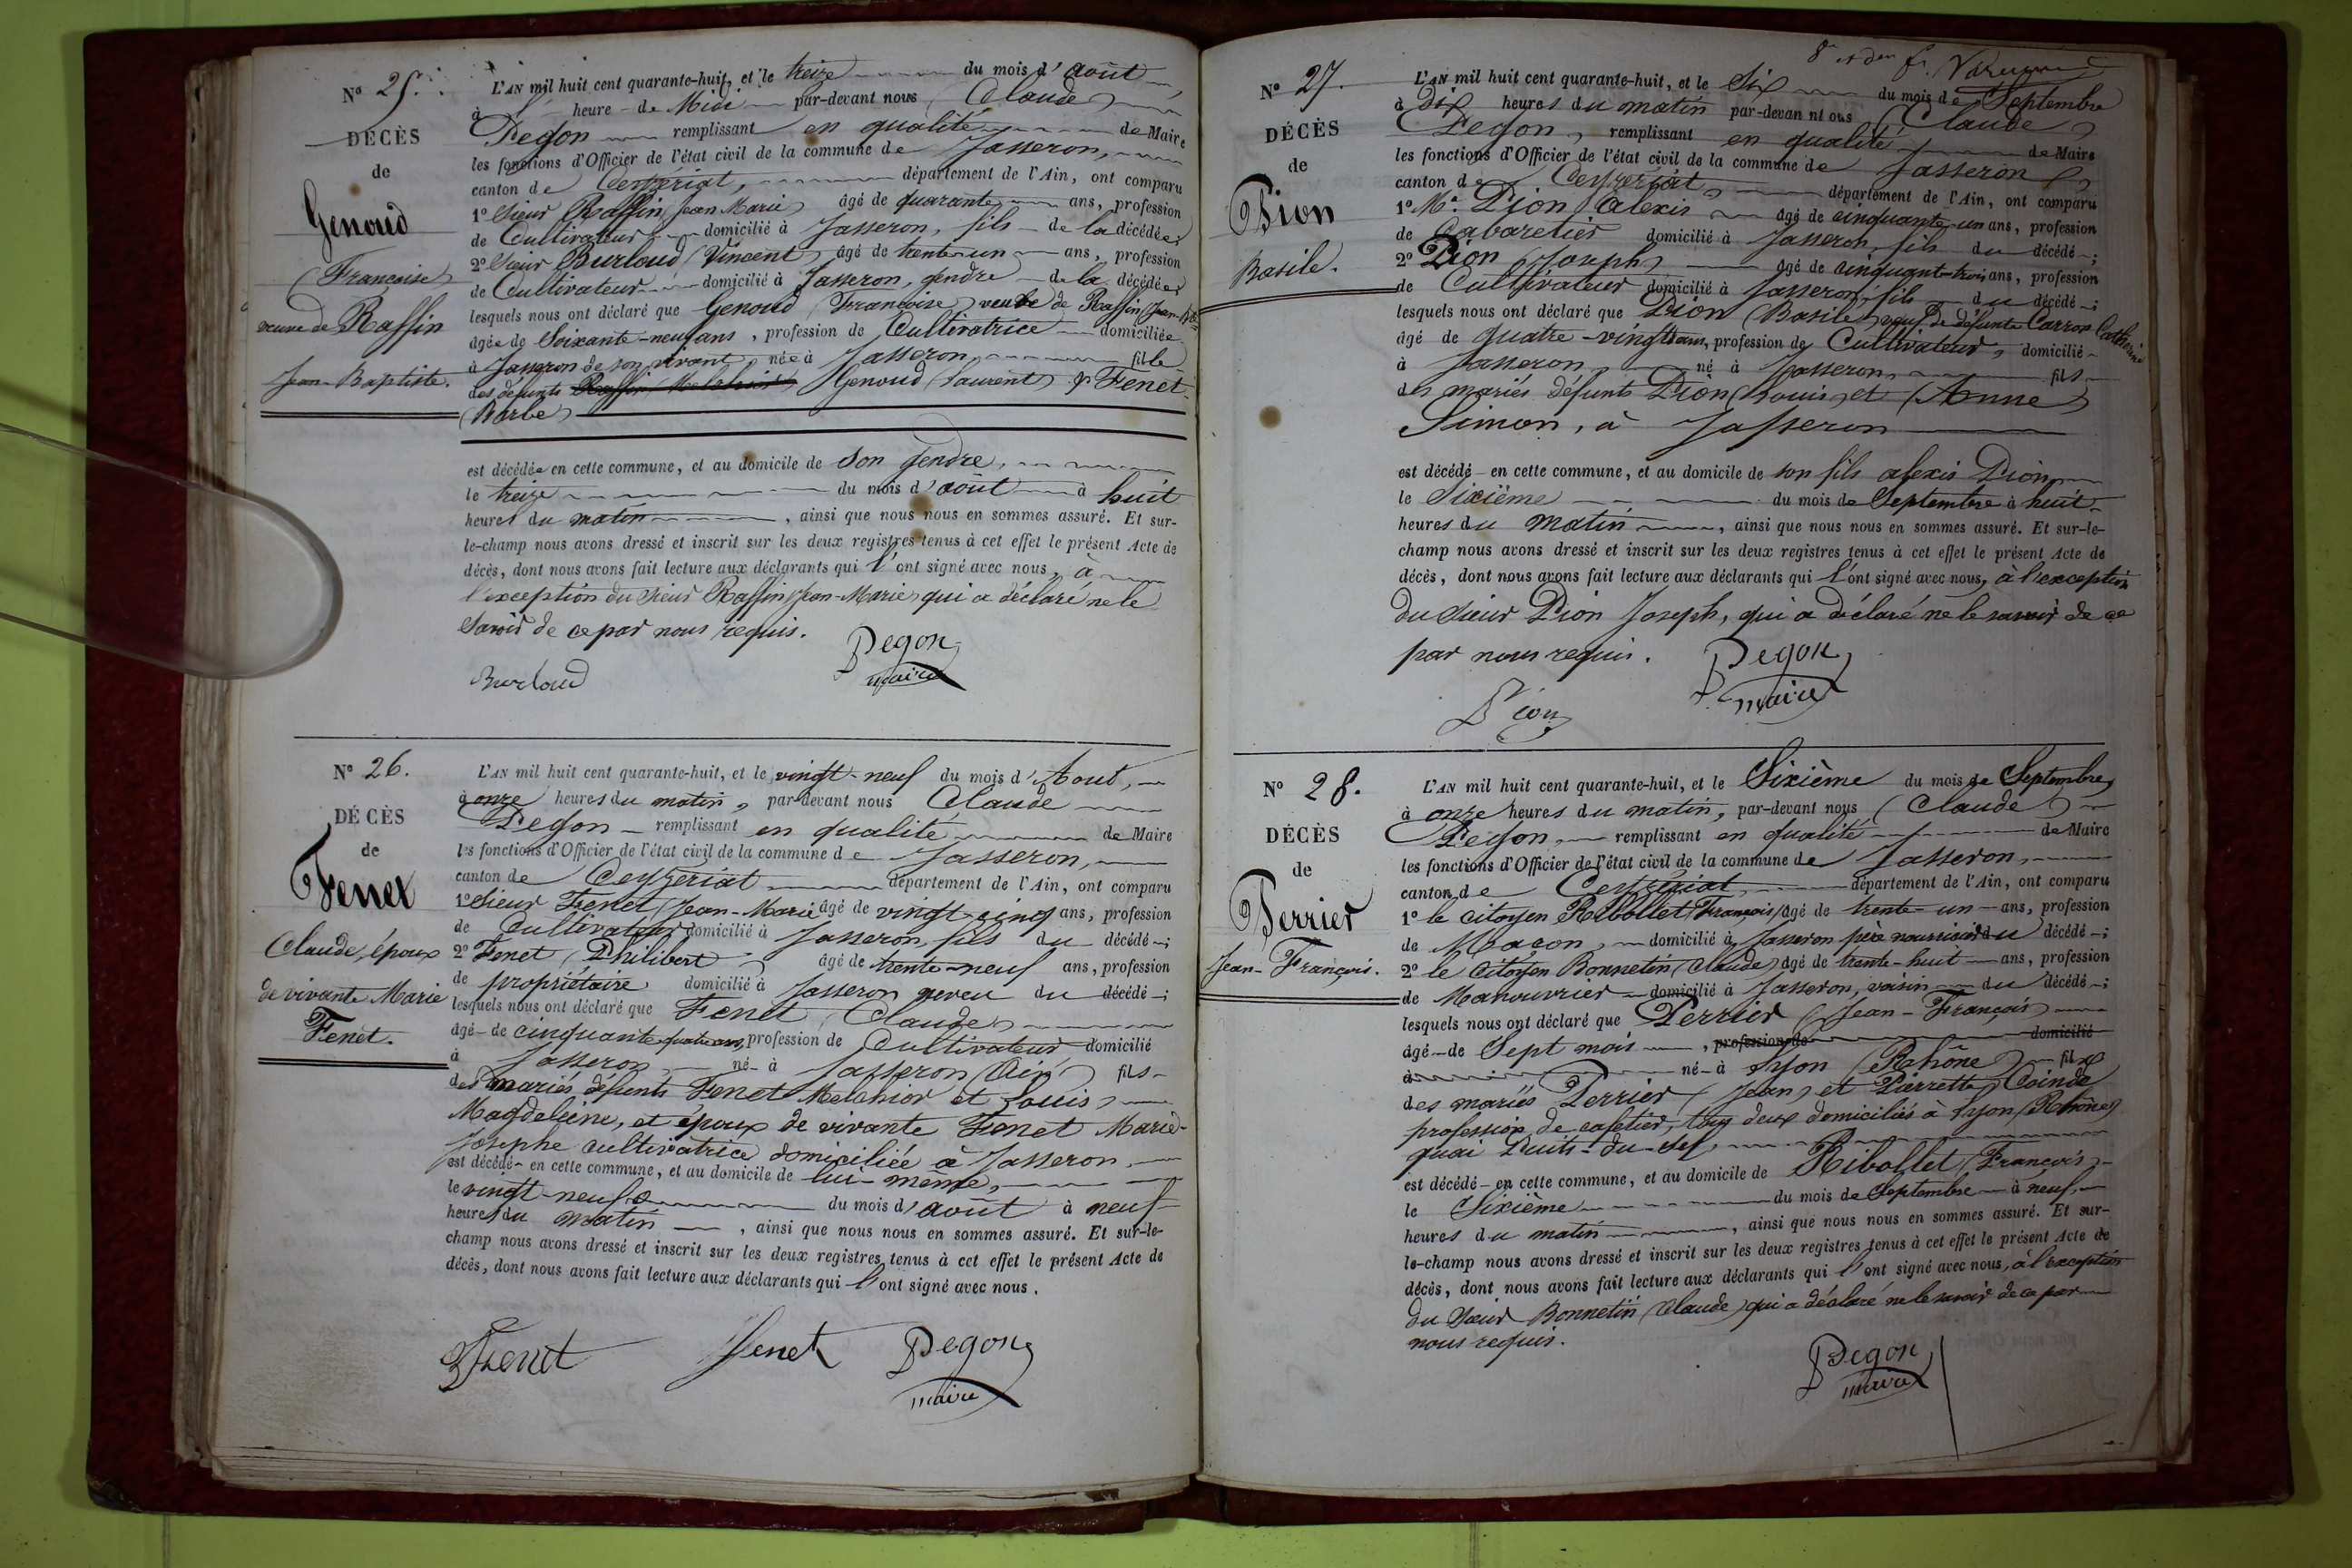 Nº 25.
DÉCÈS
de
Genoud
(Françoise)
veuve de Raffin
Jean-Baptiste.
L'AN mil huit cent quarante-huit, et le treize du mois d'août
à l' heure de Midi par-devant nous (Claude)
Pegon remplissant en qualité de Maire
les fonctions d'Officier de l'état civil de la commune de Jasseron,
canton de Ceyzériat, département de l'Ain, ont comparu
1º Sieur Raffin Jean Marie âgé de quarante ans, profession
de Cultivateur domicilié à Jasseron, fils de la décédée;
2º Sieur Burloud (Vincent) âgé de trente-un ans, profession
de Cultivateur domicilié à Jasseron, gendre de la décédée;
lesquels nous ont déclaré que Genoud (Françoise) veuve de Raffin (Jean-Bte)
âgée de Soixante-neuf ans, profession de Cultivatrice domiciliée
à Jasseron de son vivant, née à Jasseron, fille
des défunts Raffin Melchior Genoud (Laurent) & Fenet
(Barbe)
est décédée en cette commune, et au domicile de son gendre,
le treize du mois d'août à huit
heures du matin, ainsi que nous nous en sommes assuré. Et sur-
le-champ nous avons dressé et inscrit sur les deux registres tenus à cet effet le présent Acte de
décès, dont nous avons fait lecture aux déclarants qui l'ont signé avec nous, à
l'exception du sieur Raffin Jean-Marie, qui a déclaré ne le
savoir de ce par nous requis.
Pegon
maire
Burloud
Nº 26.
DÉCÈS
de
Fenet
Claude, époux
de vivante Marie
Fenet.
L'AN mil huit cent quarante-huit, et le vingt-neuf du mois d'Aout,
à onze heures du matin, par-devant nous Claude
Pegon remplissant en qualité de Maire
les fonctions d'Officier de l'état civil de la commune de Jasseron,
canton de Ceyzeriat département de l'Ain, ont comparu
1º Sieur Fenet, Jean-Marie âgé de vingt cinq ans, profession
de Cultivateur domicilié à Jasseron, fils du décédé;
2º Fenet (Philibert) âgé de trente-neuf ans, profession
de propriétaire domicilié à Jasseron neveu du décédé;
lesquels nous ont déclaré que Fenet (Claude)
âgé de cinquante quatre ans, profession de Cultivateur domicilié
à Jasseron, né à Jasseron (Ain) fils
des mariés défunts Fenet Melchior et Louis,
Magdeleine, et époux de vivante Fenet Marie-
Josephe cultivatrice domiciliée à Jasseron,
est décédé en cette commune, et au domicile de lui-même,
le vingt-neuf du mois d'août à neuf
heures du matin, ainsi que nous nous en sommes assuré. Et sur-le-
champ nous avons dressé et inscrit sur les deux registres tenus à cet effet le présent Acte de
décès, dont nous avons fait lecture aux déclarants qui l'ont signé avec nous.
Fenet Fenet Pegon
maire
Nº 27.
DÉCÈS
de
Pion
Basile.
L'AN mil huit cent quarante-huit, et le Six du mois de Septembre
à Dix heures du matin par-devan nt ous (Claude)
Pegon, remplissant en qualité de Maire
les fonctions d'Officier de l'état civil de la commune de Jasseron
canton de Ceyzériat, département de l'Ain, ont comparu
1º Mr. Pion Alexis âgé de cinquante-un ans, profession
de Cabaretier domicilié à Jasseron, fils du décédé;
2º Pion (Joseph) âgé de cinquante-trois ans, profession
de Cultivateur domicilié à Jasseron, fils du décédé;
lesquels nous ont déclaré que Pion (Basile) veuf de défunte Carron Catherine
âgé de quatre-vingts ans, profession de Cultivateur, domicilié
à Jasseron, né à Jasseron, fils
des mariés défunts Pion (Louis) et (Anne)
Simon, à Jasseron
est décédé en cette commune, et au domicile de son fils alexis Pion
le Sixième du mois de Septembre à huit
heures du matin, ainsi que nous nous en sommes assuré. Et sur-le-
champ nous avons dressé et inscrit sur les deux registres tenus à cet effet le présent Acte de
décès, dont nous avons fait lecture aux déclarants qui l'ont signé avec nous, à l'exception
du sieur Pion Joseph, qui a déclaré ne le savoir de ce
par nous requis.
Pegon
maire
Pion
Nº 28.
DÉCÈS
de
Perrier
Jean-François.
L'AN mil huit cent quarante-huit, et le Sixième du mois de Septembre,
à onze heures du matin, par-devant nous (Claude)
Pegon, remplissant en qualité de Maire
les fonctions d'Officier de l'état civil de la commune de Jasseron,
canton de Ceyzériat, département de l'Ain, ont comparu
1º le citoyen Ribollet (François) âgé de trente-un ans, profession
de Maçon, domicilié à Jasseron père nourricier du décédé;
2º le Citoyen Bonnetin (Claude) âgé de trente-huit ans, profession
de Manouvrier domicilié à Jasseron, voisin du décédé;
lesquels nous ont déclaré que Perrier (Jean-François)
âgé de Sept mois, profession de domicilié
à né à Lyon (Rhône) fils
des mariés Perrier (Jean) et Pierrette Coinde
profession de cafetier, tous deux domiciliés à Lyon (Rhône)
quai Puits-du-Sel,
est décédé en cette commune, et au domicile de Ribollet (François)
le Sixième du mois de Septembre à neuf
heures du matin, ainsi que nous nous en sommes assuré. Et sur-
le-champ nous avons dressé et inscrit sur les deux registres tenus à cet effet le présent Acte de
décès, dont nous avons fait lecture aux déclarants qui l'ont signé avec nous, à l'exception
du Sieur Bonnetin (Claude) qui a déclaré ne le savoir de ce par
nous requis.
Pegon
maire